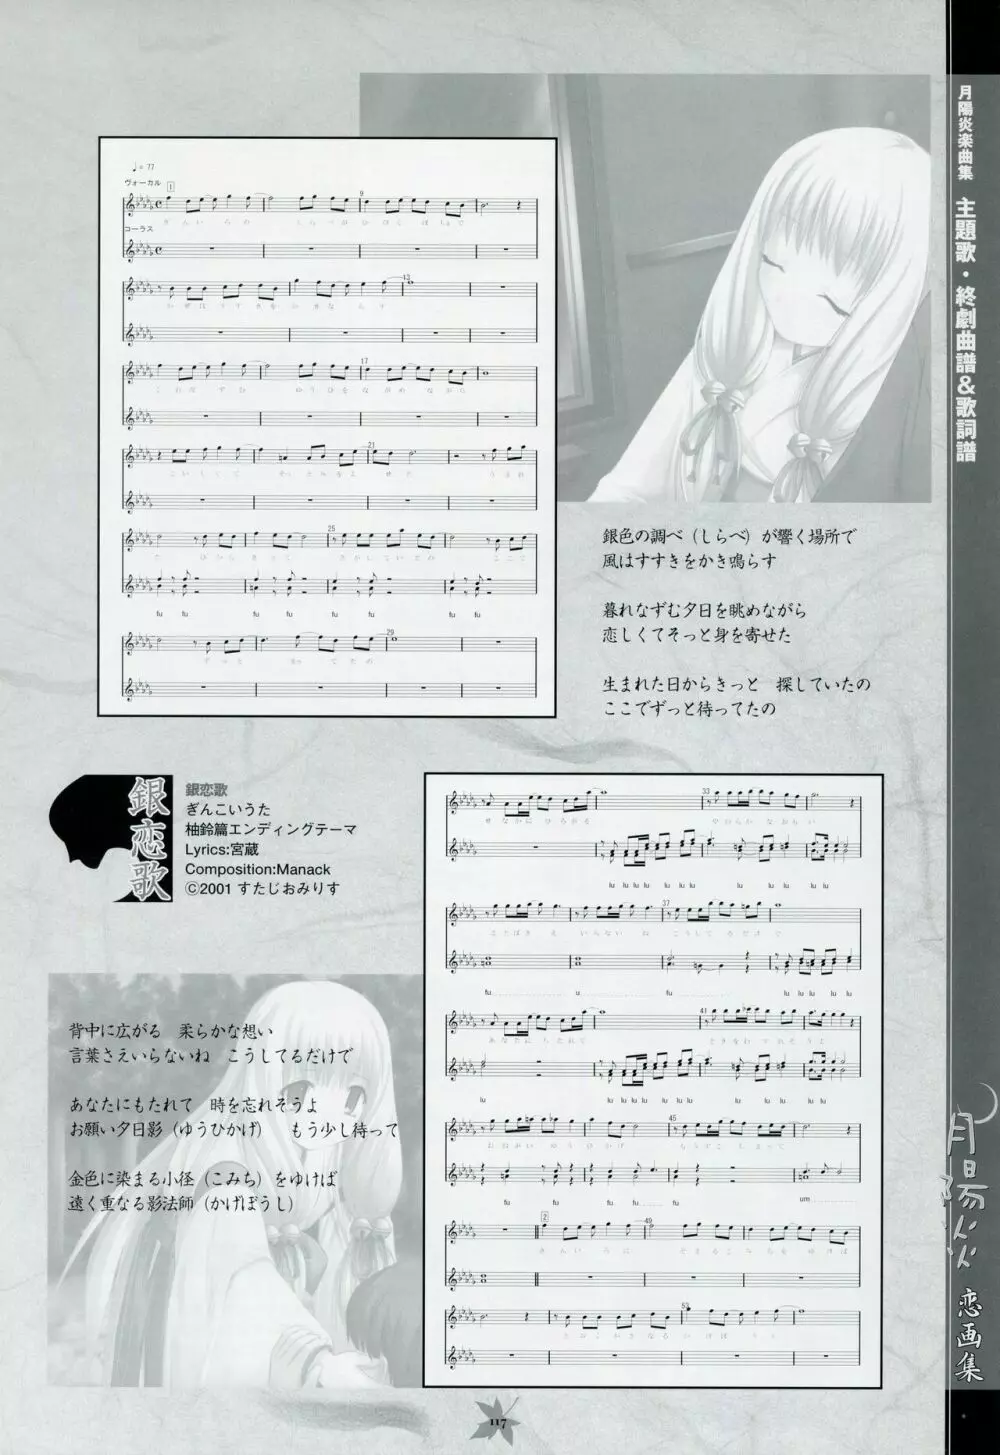 月陽炎楽曲集 主題歌・終劇曲譜&歌詞譜
♩= 77
ヴォーカル
1
9
コーラス
13
17
21
25
fu fu fu fu fu fu fu
29
銀色の調べ（しらべ）が響く場所で
風はすすきをかき鳴らす
暮れなずむ夕日を眺めながら
恋しくてそっと身を寄せた
生まれた日からきっと 探していたの
ここでずっと待ってたの
銀恋歌
銀恋歌
ぎんこいうた
柚鈴篇エンディングテーマ
Lyrics:宮蔵
Composition:Manack
©2001 すたじおみりす
33
lu lu lu lu lu lu lu lu lu lu lu
37
fu u fu lu lu lu lu
41
lu lu lu lu lu lu lu lu lu lu lu
45
fu fu fu fu um
2
49
53
背中に広がる 柔らかな想い
言葉さえいらないね こうしてるだけで
あなたにもたれて 時を忘れそうよ
お願い夕日影（ゆうひかげ） もう少し待って
金色に染まる小径（こみち）をゆけば
遠く重なる影法師（かげぼうし）
月陽炎 恋画集
117